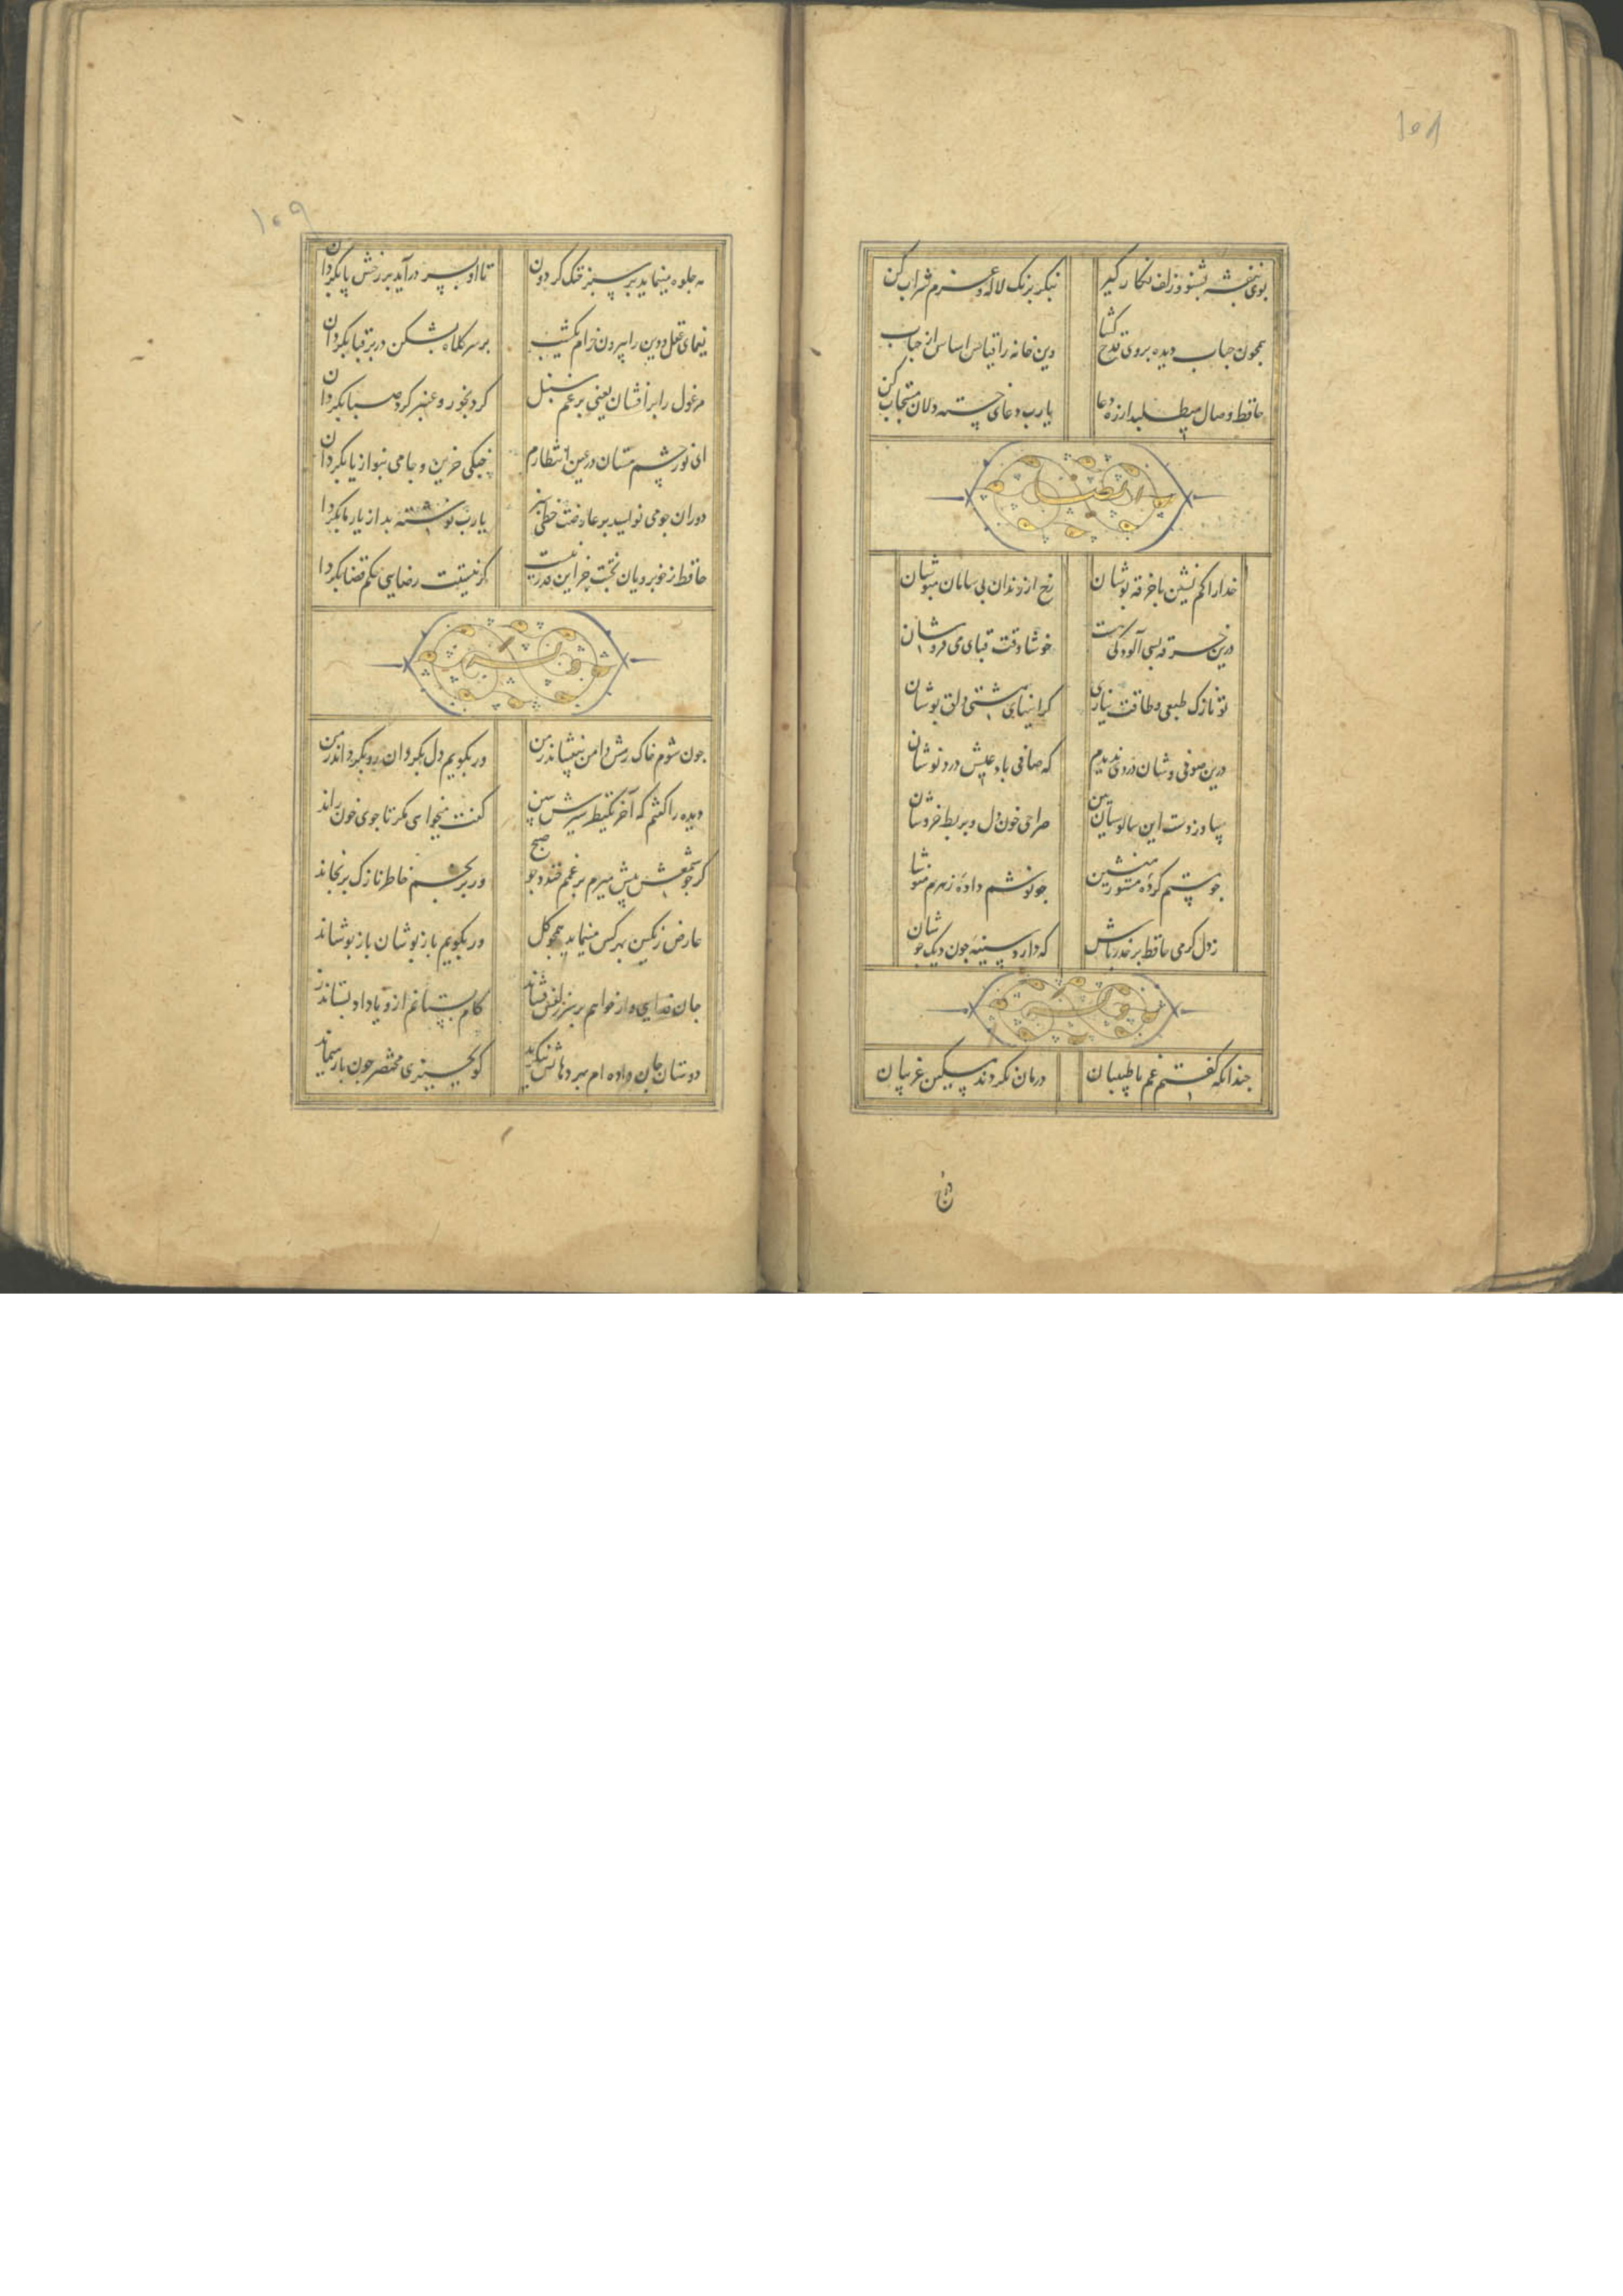 ۱۰۸
بوی بنفشه بشنو و زلف نکار کیر
بنکر برنک لاله و عزم شراب کن
همچون حباب دیده بروی قدح کشا
وین خانه را قیاس اساس از حباب کن
حافظ وصال میطلبد از ره دعا
یارب دعای خسته دلان مستجاب کن
خدا را کم نشین با خرقه پوشان
رخ از رندان بی سامان مپوشان
درین خرقه بسی آلودکی هست
خوشا وقت قبای می فروشان
تو نازک طبعی و طاقت نیاری
کرانیهای مشتی دلق پوشان
درین صوفی وشان دردی ندیدم
که صافی باد عیش درد نوشان
بیا وز دست این سالوسیان بین
صراحی خون دل و بربط خروشان
چو مستم کرده مستور منشین
چو نوشم داده زهرم منوشان
ز دل کرمی حافظ بر حذر باش
که دارد سینه چون دیک جوشان
چندانکه کفتم غم با طبیبان
درمان نکردند مسکین غریبان
۱۰۹
مه جلوه مینماید بر سبز خنک کردون
تا او بسر درآید بر رخش پا بکردان
یغمای عقل و دین را بیرون خرام یکشب
بر سر کلاه بشکن در بر قبا بکردان
مرغول را برافشان یعنی برغم سنبل
کرد بخور و عنبر کرد صبا بکردان
ای نور چشم مستان در عین انتظارم
چنکی حزین و جامی بنواز یا بکردان
دوران چو می نویسد بر عارضت خطی سبز
یارب نوشته بد از یار ما بکردان
حافظ ز خوبرویان بختت جز این قدر نیست
کر نیستت رضایی حکم قضا بکردان
وله ایضا
چون شوم خاک رهش دامن بیفشاند ز من
ور بکویم دل بکردان رو بکرداند ز من
دیده را کفتم که آخر یکنظر سیرش ببین
کفت میخواهی مکر تا جوی خون راند
کر چو شمعش پیش میرم بر غمم خندد چو صبح
ور برنجم خاطر نازک برنجاند
عارض رنکین بهر کس مینماید همچو کل
ور بکویم باز پوشان باز پوشاند
جان فدایی وار خواهم بر سر زلفش فشاند
کام بستانم ازو یا داد بستاند ز
دوستان جان داده ام بهر دهانش بنکرید
کو بچیزی مختصر چون باز میماند